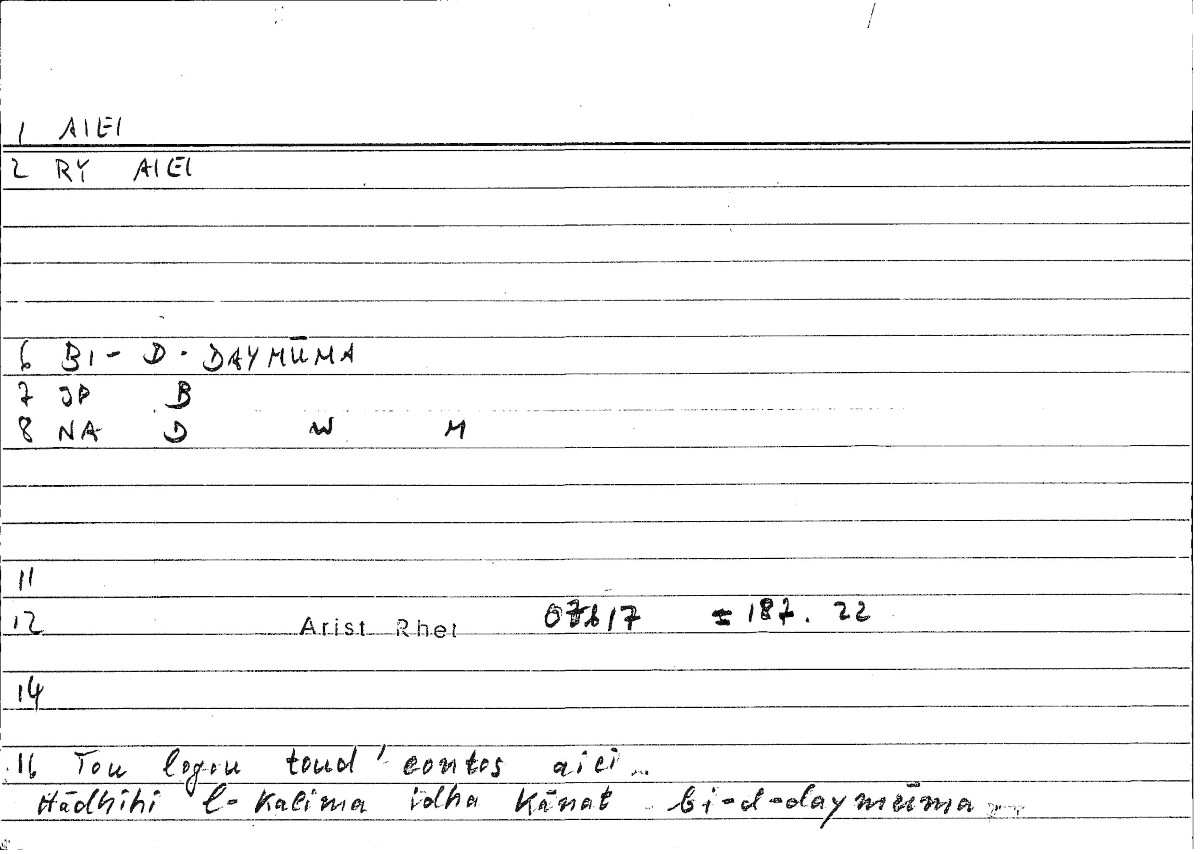 1 AIEI
2 RY AIEI
6 BI-D-DAYMŪMA
7 JP B
8 NA D W M
11
12 Arist Rhet 07b17 = 187.22
14
16 Tou logou toud' eontos aiei...
Hādhihi l-Kalima idha Kānat bi-d-daymūma